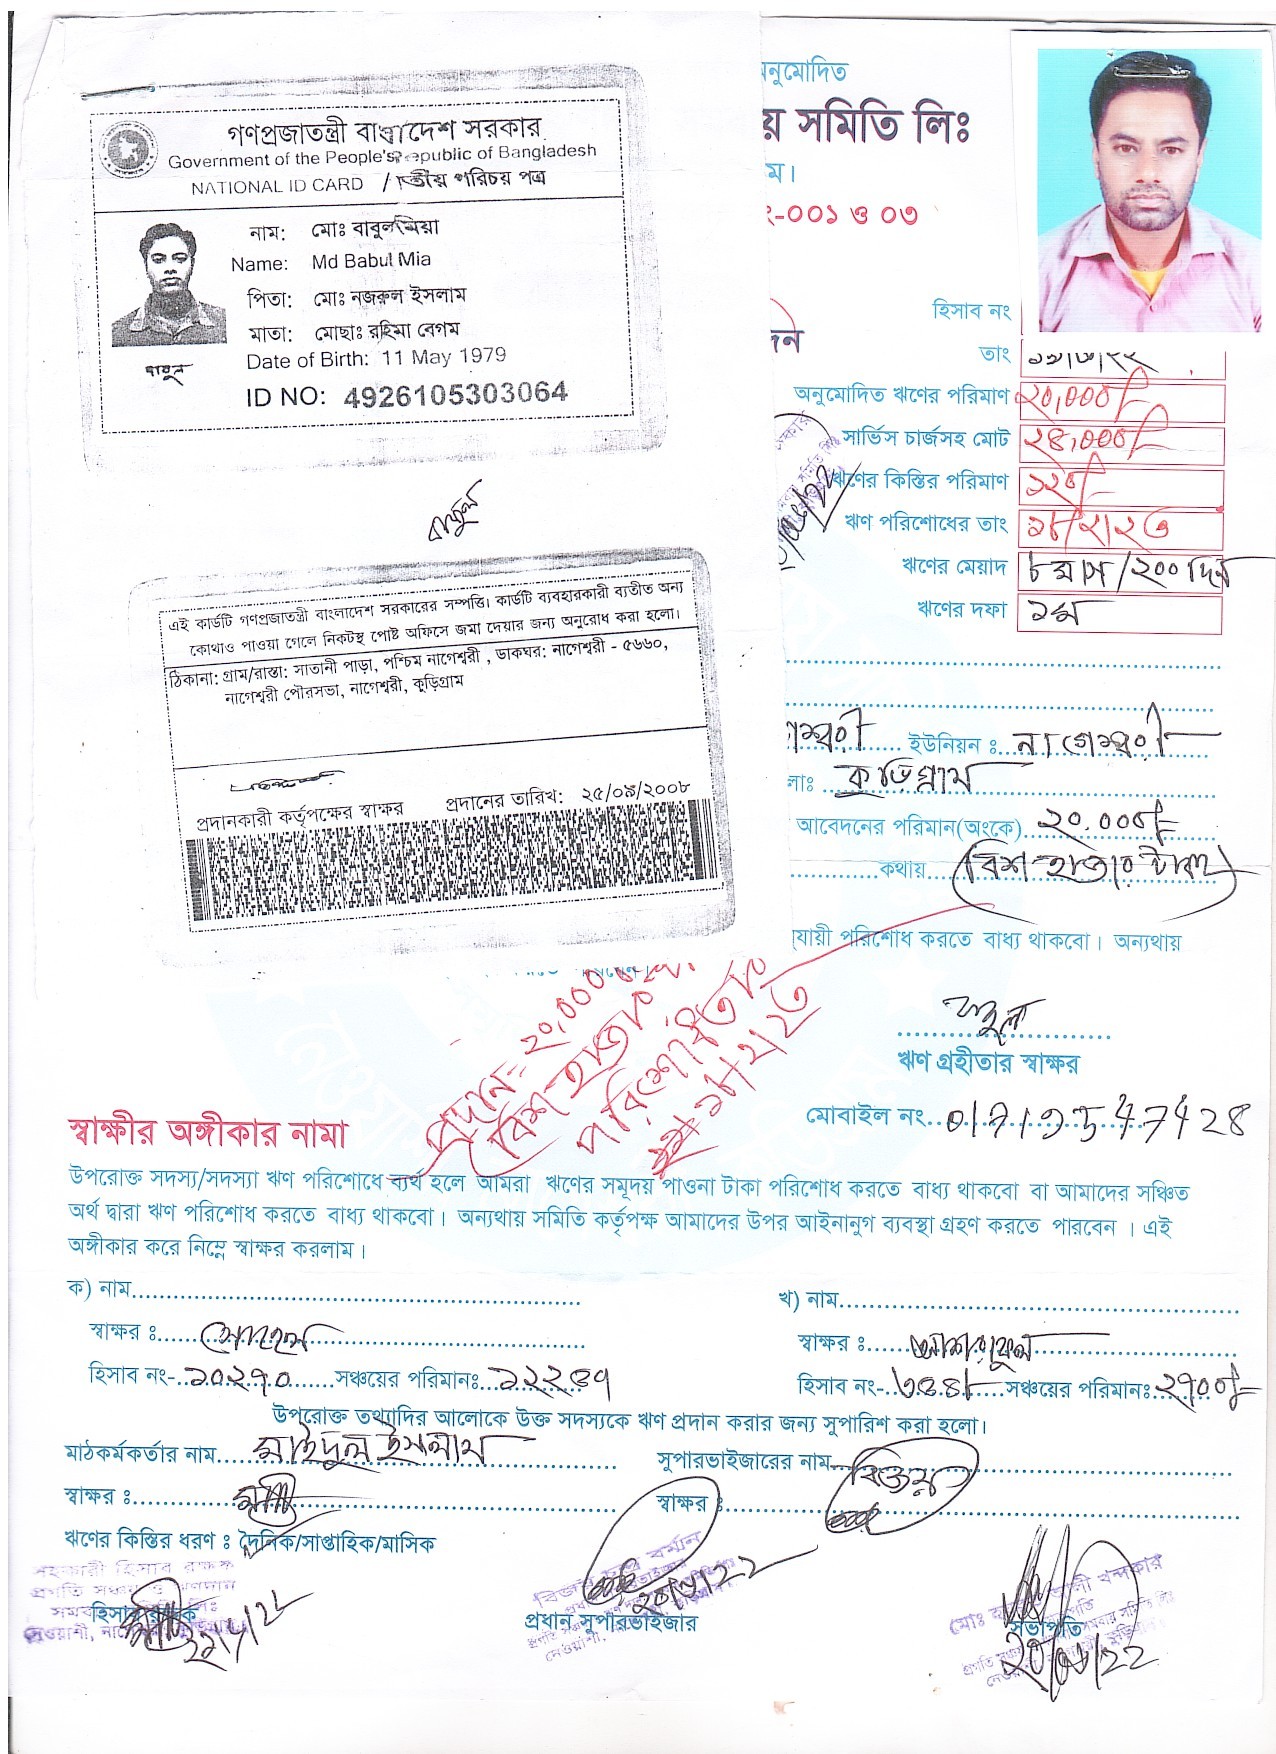 গণপ্রজাতন্ত্রী বাংলাদেশ সরকার
Government of the People's Republic of Bangladesh
NATIONAL ID CARD / জাতীয় পরিচয় পত্র
নাম: মোঃ বাবুল মিয়া
Name: Md Babul Mia
পিতা: মোঃ নজরুল ইসলাম
মাতা: মোছাঃ রহিমা বেগম
Date of Birth: 11 May 1979
ID NO: 4926105303064
বাবুল
বাবুল
এই কার্ডটি গণপ্রজাতন্ত্রী বাংলাদেশ সরকারের সম্পত্তি। কার্ডটি ব্যবহারকারী ব্যতীত অন্য
কোথাও পাওয়া গেলে নিকটস্থ পোষ্ট অফিসে জমা দেয়ার জন্য অনুরোধ করা হলো।
ঠিকানা: গ্রাম/রাস্তা: সাতানী পাড়া, পশ্চিম নাগেশ্বরী , ডাকঘর: নাগেশ্বরী - ৫৬৬০,
নাগেশ্বরী পৌরসভা, নাগেশ্বরী, কুড়িগ্রাম
প্রদানকারী কর্তৃপক্ষের স্বাক্ষর প্রদানের তারিখ: ২৫/০৯/২০০৮
নুমোদিত
য় সমিতি লিঃ
ম।
২-০০১ ও ০৩
দন
হিসাব নং
তাং
অনুমোদিত ঋণের পরিমাণ ২০,০০০/-
সার্ভিস চার্জসহ মোট ২৪,০০০/-
ঋণের কিস্তির পরিমাণ ১২০/-
ঋণ পরিশোধের তাং ১৮/২/২৩
ঋণের মেয়াদ ৮ মাস /২০০ দিন
ঋণের দফা ১ম
গেশ্বরী ইউনিয়ন ঃ নাগেশ্বরী
লাঃ কুড়িগ্রাম
আবেদনের পরিমান(অংকে) ২০,০০০/-
কথায় বিশ হাজার টাকা
যায়ী পরিশোধ করতে বাধ্য থাকবো। অন্যথায়
প্রদান= ২০,০০০
বিশ হাজার
পরিশোধিত
১৮/২/২৩
বাবুল
ঋণ গ্রহীতার স্বাক্ষর
মোবাইল নং
স্বাক্ষীর অঙ্গীকার নামা
উপরোক্ত সদস্য/সদস্যা ঋণ পরিশোধে ব্যর্থ হলে আমরা ঋণের সমূদয় পাওনা টাকা পরিশোধ করতে বাধ্য থাকবো বা আমাদের সঞ্চিত
অর্থ দ্বারা ঋণ পরিশোধ করতে বাধ্য থাকবো। অন্যথায় সমিতি কর্তৃপক্ষ আমাদের উপর আইনানুগ ব্যবস্থা গ্রহণ করতে পারবেন । এই
অঙ্গীকার করে নিম্নে স্বাক্ষর করলাম।
ক) নাম
স্বাক্ষর ঃ সোহেল
হিসাব নং- ১০২৭০ সঞ্চয়ের পরিমানঃ ১২২৩৭
খ) নাম
স্বাক্ষর ঃ আশরাফুল
হিসাব নং- সঞ্চয়ের পরিমানঃ ২৭০০/-
উপরোক্ত তথ্যাদির আলোকে উক্ত সদস্যকে ঋণ প্রদান করার জন্য সুপারিশ করা হলো।
মাঠকর্মকর্তার নাম সাইদুল ইসলাম
স্বাক্ষর ঃ
সুপারভাইজারের নাম বিজয়
স্বাক্ষর ঃ
ঋণের কিস্তির ধরণ ঃ দৈনিক/সাপ্তাহিক/মাসিক
সহকারী হিসাব রক্ষক
হিসাব রক্ষক
প্রধান সুপারভাইজার
সভাপতি